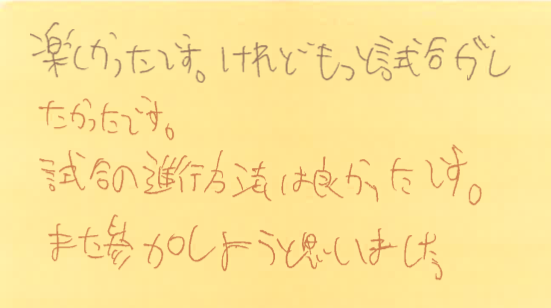 楽しかったです。けれどもっと試合がし
たかったです。
試合の進行方法は良かったです。
また参加しようと思いました。